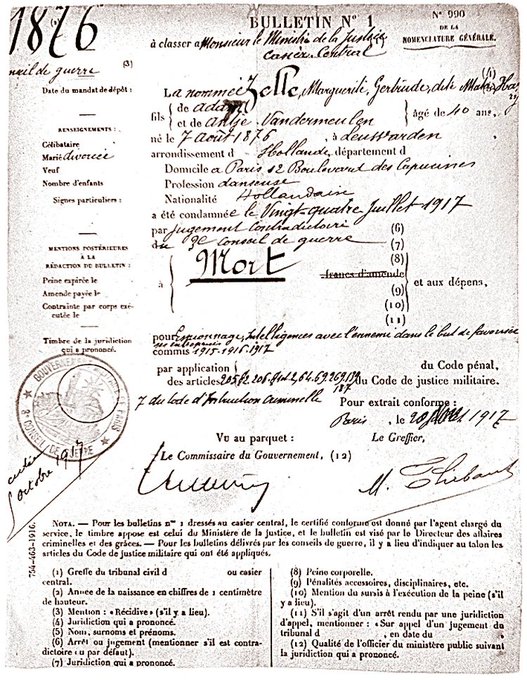 1876
BULLETIN Nº 1
Nº 990
DE LA
NOMENCLATURE GÉNÉRALE.
(3)
à classer a Monsieur le Ministre de la Justice
Casier Central
conseil de guerre
Date du mandat de dépôt :
La nommée Zelle, Marguerite, Gertrude, dite Mata Hari
fils { de adam
et de Antje Vandermeulen } âgé de 40 ans,
RENSEIGNEMENTS :
né le 7 Août 1876 à Leuwarden
Célibataire
Marié divorcée
Veuf
Nombre d'enfants
Signes particuliers :
arrondissement d Hollande, département d
Domicile a Paris 12 Boulevard des Capucines
Profession danseuse
Nationalité Hollandaise
a été condamnée le Vingt-quatre Juillet 1917
par jugement Contradictoire (6)
du 3e Conseil de guerre (7)
MENTIONS POSTÉRIEURES
À LA
RÉDACTION DU BULLETIN :
Peine expirée le
Amende payée le
Contrainte par corps exé-
cutée le
à { Mort (8)
francs d'amende
(9)
(10)
(11) } et aux dépens,
Timbre de la juridiction
qui a prononcé.
pour Espionnage, Intelligences avec l'ennemi dans le but de favoriser
ses entreprises
commis 1915-1916-1917
par application { du Code pénal,
des articles 205 § 2, 206 64, 69, 269 du Code de justice militaire.
187
7 du Code d'Instruction Criminelle
Pour extrait conforme :
Paris, le 1917
Vu au parquet :
Le Greffier,
Le Commissaire du Gouvernement, (12)
M. Thibaut
octobre 1917
3e CONSEIL DE GUERRE
GOUVERNEMENT DE PARIS
754-463-1916.
NOTA. — Pour les bulletins nos 1 dressés au casier central, le certifié conforme est donné par l'agent chargé du
service, le timbre apposé est celui du Ministère de la justice, et le bulletin est visé par le Directeur des affaires
criminelles et des grâces. — Pour les bulletins délivrés par les conseils de guerre, il y a lieu d'indiquer au talon les
articles du Code de justice militaire qui ont été appliqués.
(1) Greffe du tribunal civil d ou casier
central.
(2) Année de la naissance en chiffres de 1 centimètre
de hauteur.
(3) Mention : «Récidive» (s'il y a lieu).
(4) Juridiction qui a prononcé.
(5) Nom, surnoms et prénoms.
(6) Arrêt ou jugement (mentionner s'il est contra-
dictoire ou par défaut).
(7) Juridiction qui a prononcé.
(8) Peine corporelle.
(9) Pénalités accessoires, disciplinaires, etc.
(10) Mention du sursis à l'exécution de la peine (s'il
y a lieu).
(11) S'il s'agit d'un arrêt rendu par une juridiction
d'appel, mentionner : "Sur appel d'un jugement du
tribunal d , en date du ».
(12) Qualité de l'officier du ministère public suivant
la juridiction qui a prononcé.